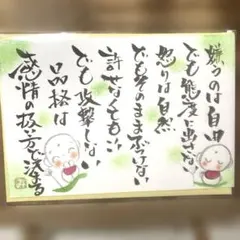 嫌うのは自由
でも態度に出さない
怒りは自然
でもそのままぶつけない
許せなくてもいい
でも攻撃しない
品格は
感情の扱い方で決まる